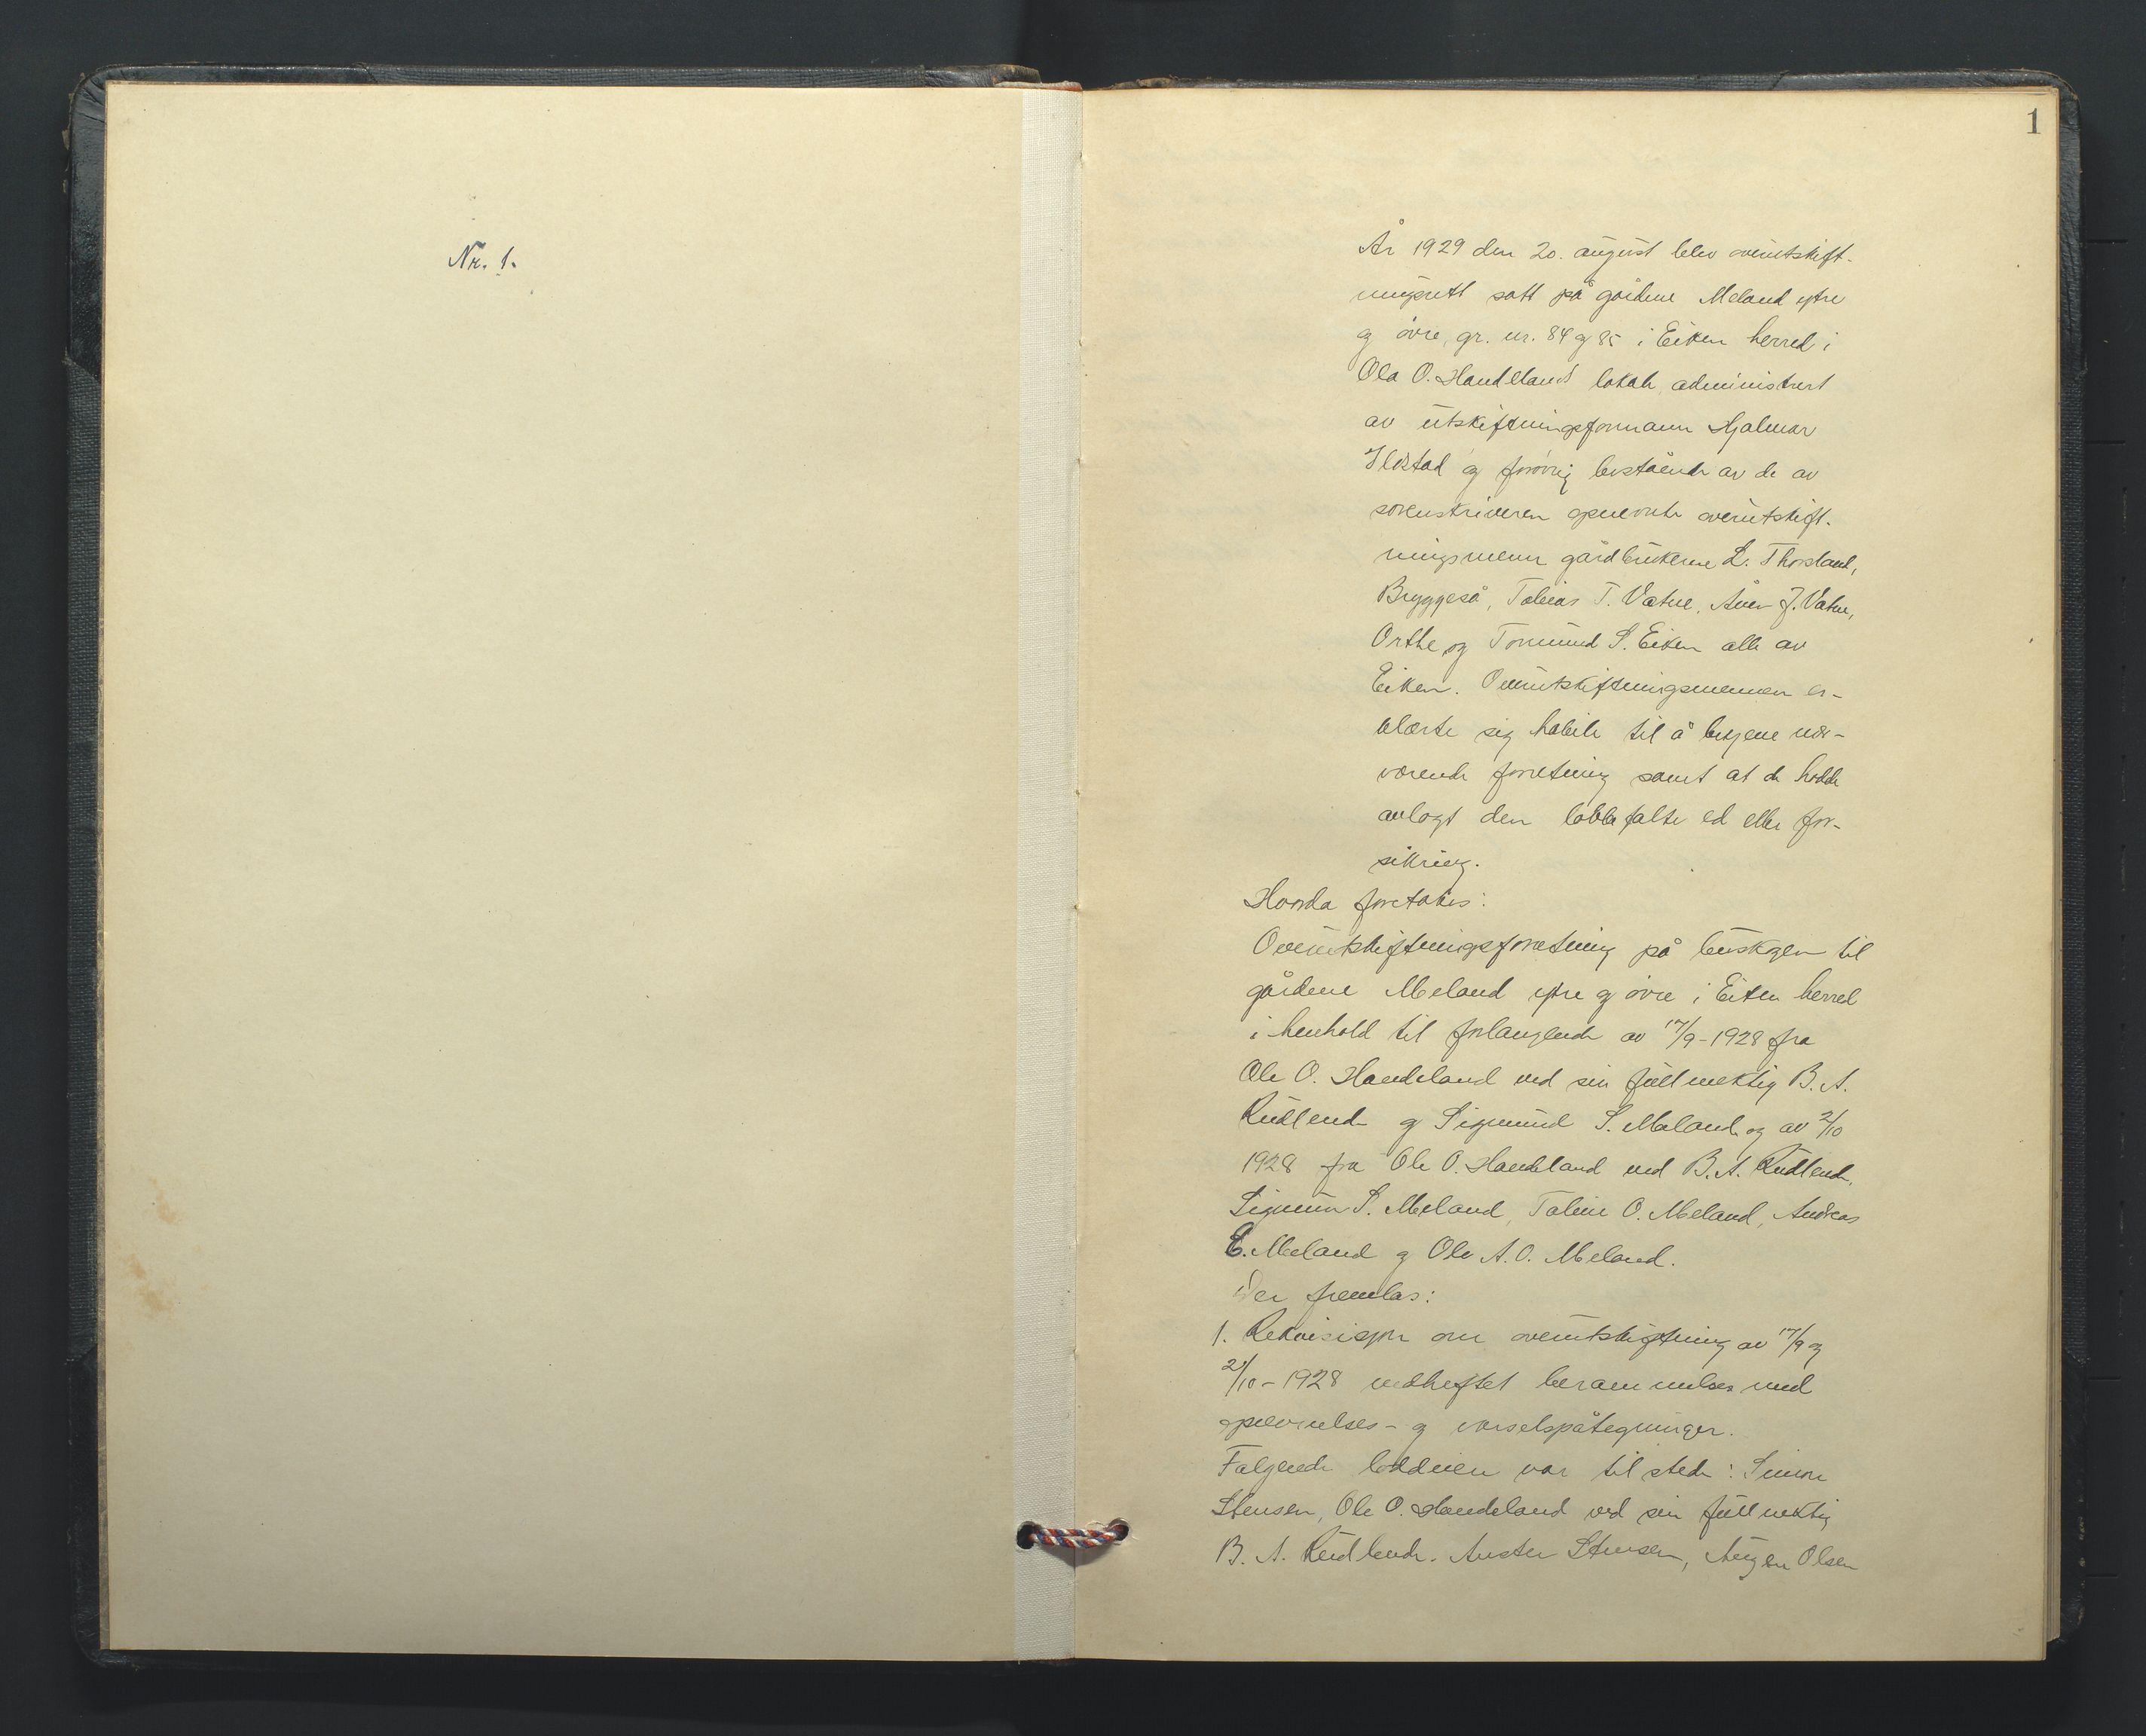 Nr. 1.
1
År 1929 den 20. august blev overutskift-
ningsrett satt på gårdene Meland ytre
og øvre, gr. nr. 84 og 85 i Eiken herred i
Ola O. Handelands lokale administrert
av utskiftningsformann Hjalmar
og forøvrig bestående av de av
sorenskriveren opnevnte overutskift-
ningsmenn gårdbrukerne L. Thorsland,
Bryggeså, Tobias T. Vatne, J. Vatne,
og Tormund S. Eiken alle av
Eiken. Overutskiftningsmennen er-
klærte sig habile til å betjene nær-
værende forretning samt at de hadde
avlagt den lovbefalte ed eller for-
sikring.
Hvorda foretokes:
Overutskiftningsforretning på buskogen til
gårdene Meland ytre og øvre i Eiken herred
i henhold til forlangende av 17/9-1928 fra
Ole O. Handeland ved sin fullmektig B. A.
Rudlende og Sigmund S. Meland og av 2/10
1928 fra Ole O. Handeland ved B. A. Rudlende,
Sigmund S. Meland, Taline O. Meland, Andreas
E. Meland og Ole A. O. Meland.
Der fremlas:
1. Rekvisisjon om overutskiftning av 17/9 og
2/10-1928 vedheftet berammelse med
opnevnelses- og varselspåtegninger.
Følgende loddeiere var til stede: Simon
Stensen, Ole O. Handeland ved sin fullmektig
B. A. Rudlende. Austen Stensen, Olsen